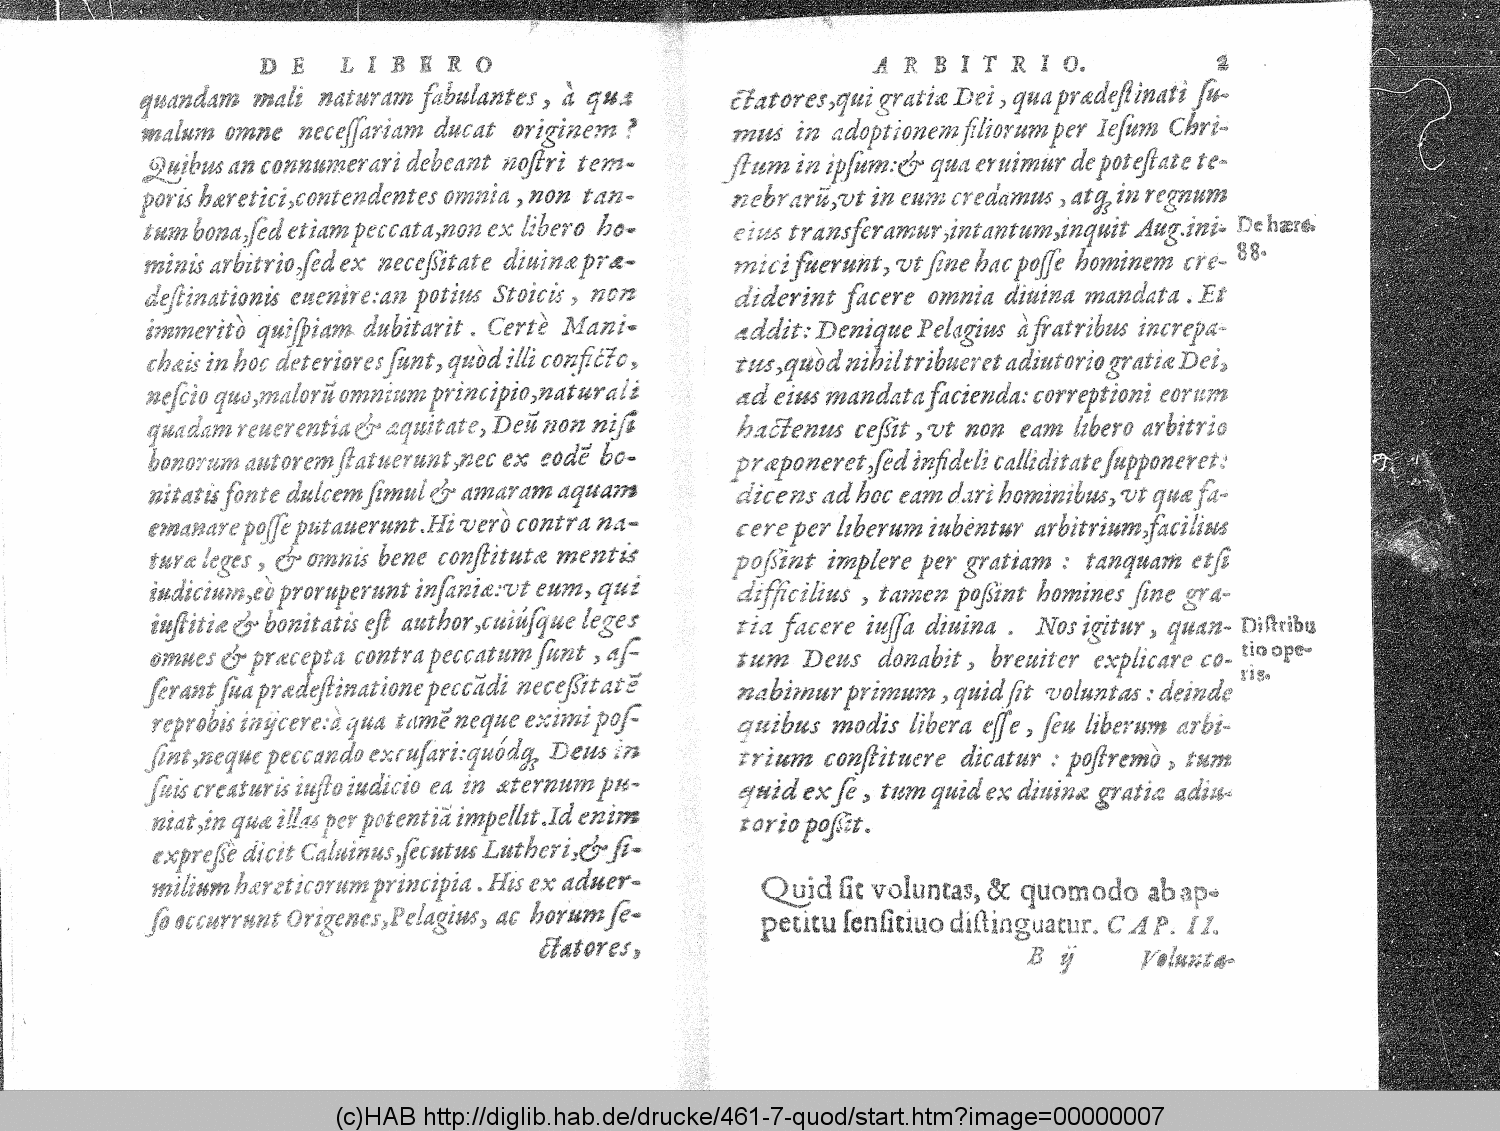 DE LIBERO
quandam mali naturam fabulantes, à qua
malum omne neceſſariam ducat originem?
Quibus an connumerari debeant noſtri tem-
poris hæretici, contendentes omnia, non tan-
tum bona, ſed etiam peccata, non ex libero ho-
minis arbitrio, ſed ex neceßitate diuinæ præ-
deſtinationis euenire: an potius Stoicis, non
immeritò quiſpiam dubitarit. Certè Mani-
chæis in hoc deteriores ſunt, quòd illi conficto,
neſcio quo, malorũ omnium principio, naturali
quadam reuerentia & æquitate, Deũ non niſi
bonorum autorem ſtatuerunt, nec ex eodẽ bo-
nitatis fonte dulcem ſimul & amaram aquam
emanare poſſe putauerunt. Hi verò contra na-
turæ leges, & omnis bene conſtitutæ mentis
iudicium, eò proruperunt inſaniæ: vt eum, qui
iuſtitiæ & bonitatis eſt author, cuiúſque leges
omues & præcepta contra peccatum ſunt, aſ-
ſerant ſua prædeſtinatione peccãdi neceßitatẽ
reprobis inijcere: à qua tamẽ neque eximi poſ-
ſint, neque peccando excuſari: quódq; Deus in
ſuis creaturis iuſto iudicio ea in æternum pu-
niat, in quæ illas per potentiã impellit. Id enim
expreſſè dicit Caluinus, ſecutus Lutheri, & ſi-
milium hæreticorum principia. His ex aduer-
ſo occurrunt Origenes, Pelagius, ac horum ſe-
ctatores,
ARBITRIO. 2
ctatores, qui gratiæ Dei, qua prædeſtinati ſu-
mus in adoptionem filiorum per Ieſum Chri-
ſtum in ipſum: & qua eruimur de poteſtate te-
nebrarũ, vt in eum credamus, atq; in regnum
eius transferamur, intantum, inquit Aug. ini-
mici fuerunt, vt ſine hac poſſe hominem cre-
diderint facere omnia diuina mandata. Et
addit: Denique Pelagius à fratribus increpa-
tus, quòd nihil tribueret adiutorio gratiæ Dei,
ad eius mandata facienda: correptioni eorum
hactenus ceßit, vt non eam libero arbitrio
præponeret, ſed infideli calliditate ſupponeret:
dicens ad hoc eam dari hominibus, vt quæ fa-
cere per liberum iubentur arbitrium, facilius
poßint implere per gratiam: tanquam etſi
difficilius, tamen poßint homines ſine gra-
tia facere iuſſa diuina. Nos igitur, quan-
tum Deus donabit, breuiter explicare co-
nabimur primum, quid ſit voluntas: deinde
quibus modis libera eſſe, ſeu liberum arbi-
trium conſtituere dicatur: poſtremò, tum
quid ex ſe, tum quid ex diuinæ gratiæ adiu-
torio poßit.
De hæré.
88.
Diſtribu
tio ope-
ris.
Quid ſit voluntas, & quomodo ab ap-
petitu ſenſitiuo diſtinguatur. CAP. II.
B ij Volunta-
(c)HAB http://diglib.hab.de/drucke/461-7-quod/start.htm?image=00000007